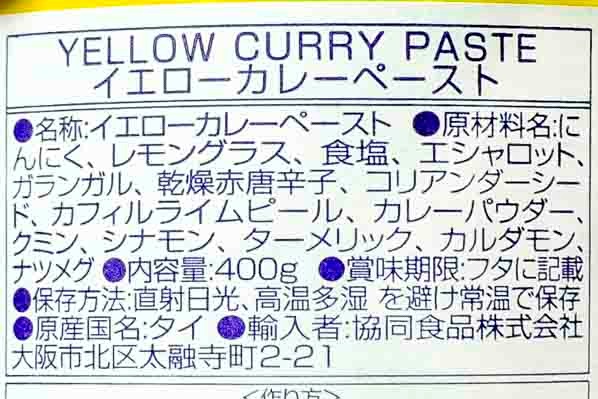 YELLOW CURRY PASTE
イエローカレーペースト
●名称:イエローカレーペースト ●原材料名:に
んにく、レモングラス、食塩、エシャロット、
ガランガル、乾燥赤唐辛子、コリアンダーシー
ド、カフィルライムピール、カレーパウダー、
クミン、シナモン、ターメリック、カルダモン、
ナツメグ ●内容量:400g ●賞味期限:フタに記載
●保存方法:直射日光、高温多湿 を避け常温で保存
●原産国名:タイ ●輸入者:協同食品株式会社
大阪市北区太融寺町2-21
<作り方>